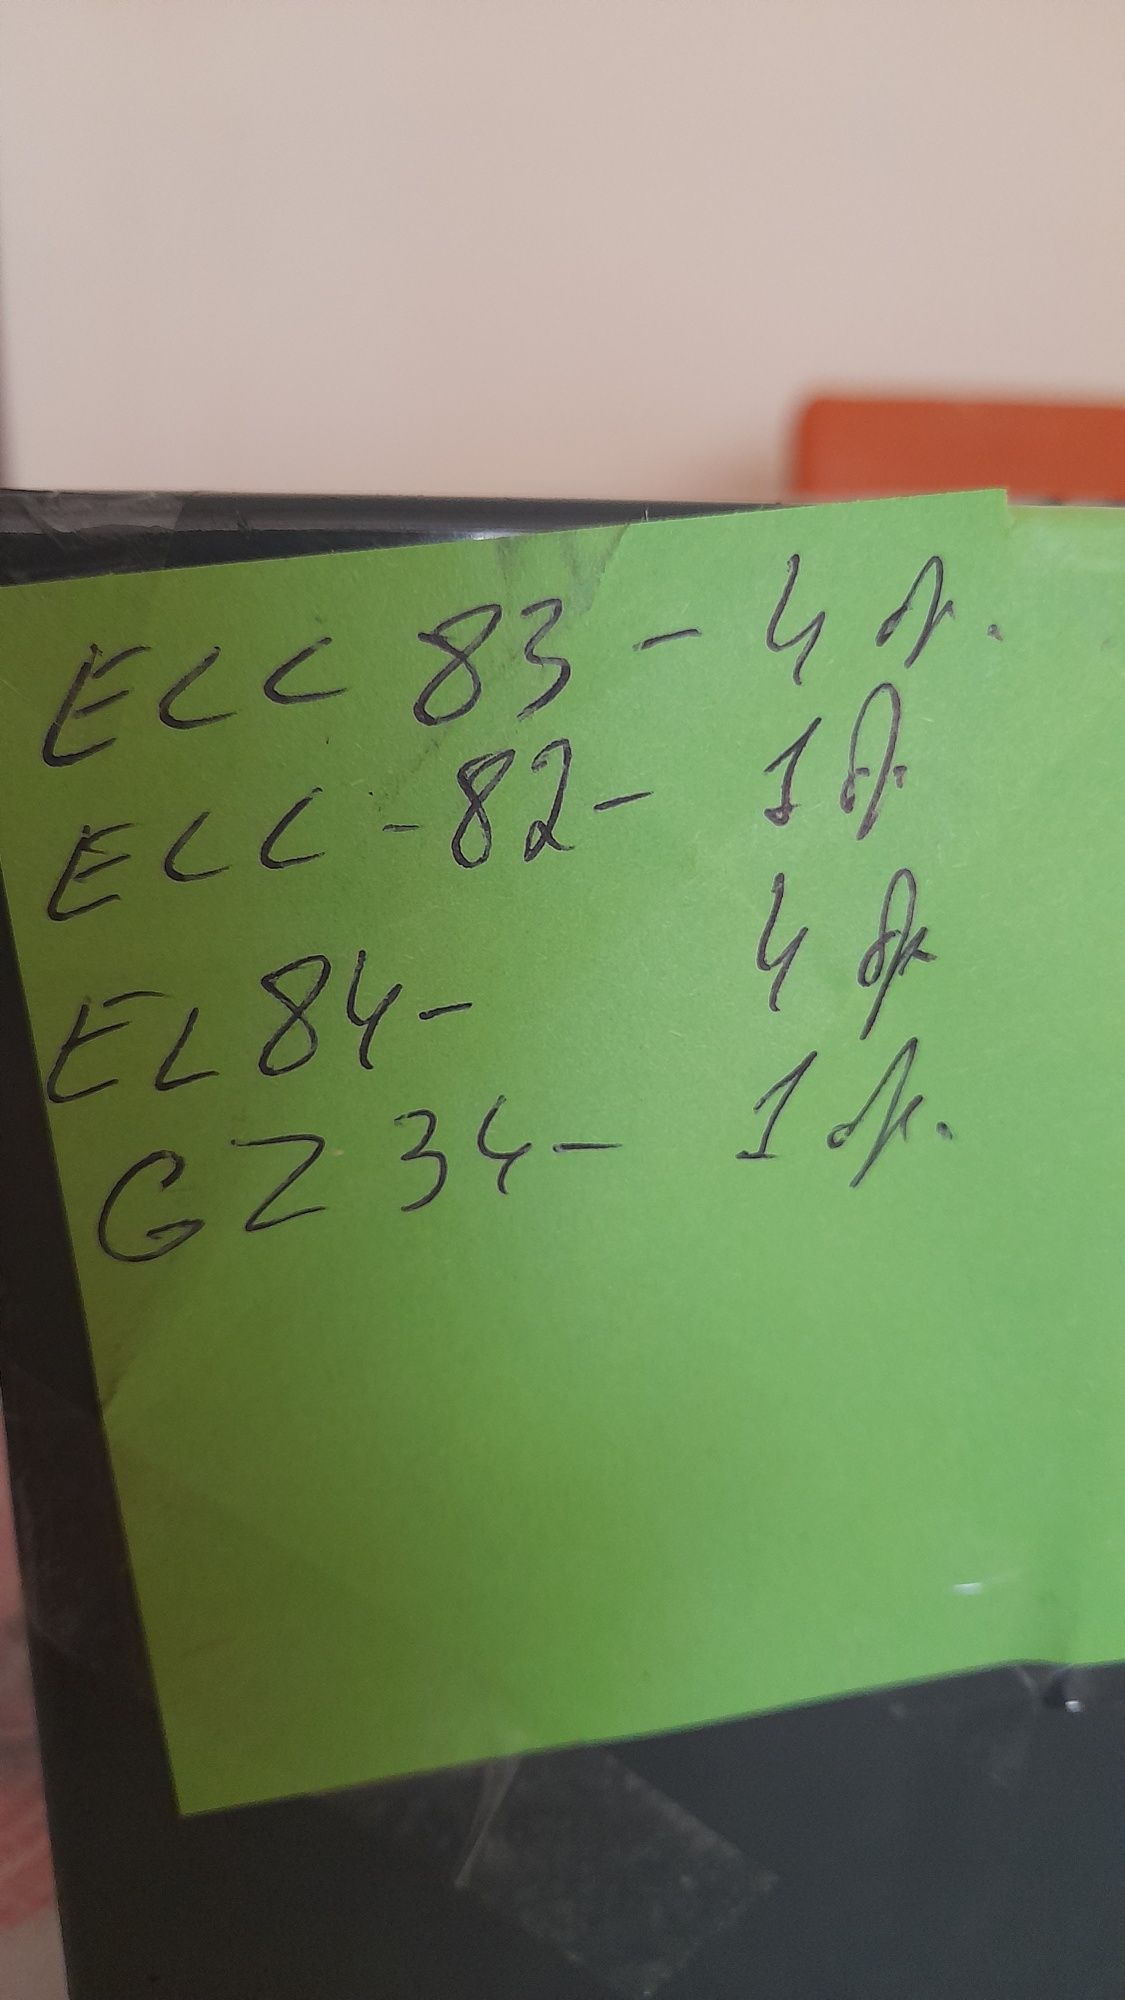 ECC 83 - 4 бр.
ECC - 82 - 1 бр.
EL 84 - 4 бр.
GZ 34 - 1 бр.